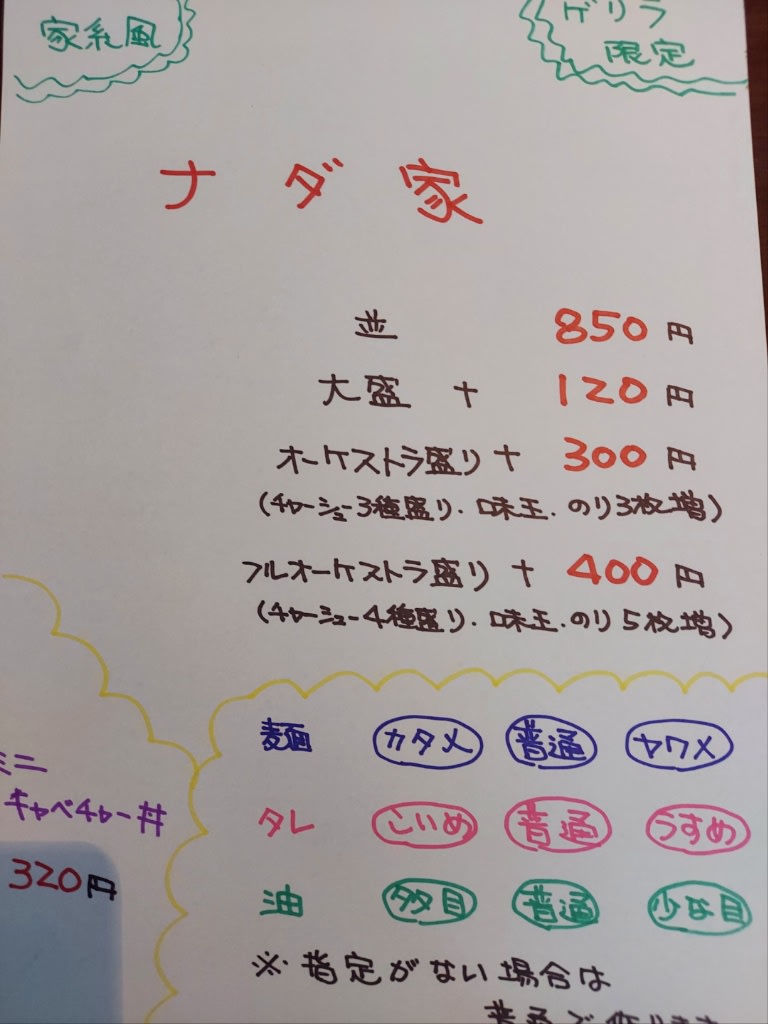 家系風
ゲリラ
限定
ナダ家
並 850円
大盛 + 120円
オーケストラ盛り + 300円
(チャーシュー3種盛り・味玉・のり3枚増)
フルオーケストラ盛り + 400円
(チャーシュー4種盛り・味玉・のり5枚増)
麺 カタメ 普通 ヤワメ
タレ こいめ 普通 うすめ
油 多目 普通 少な目
※指定がない場合は
普通で作ります
ミニ
キャベチャー丼
320円